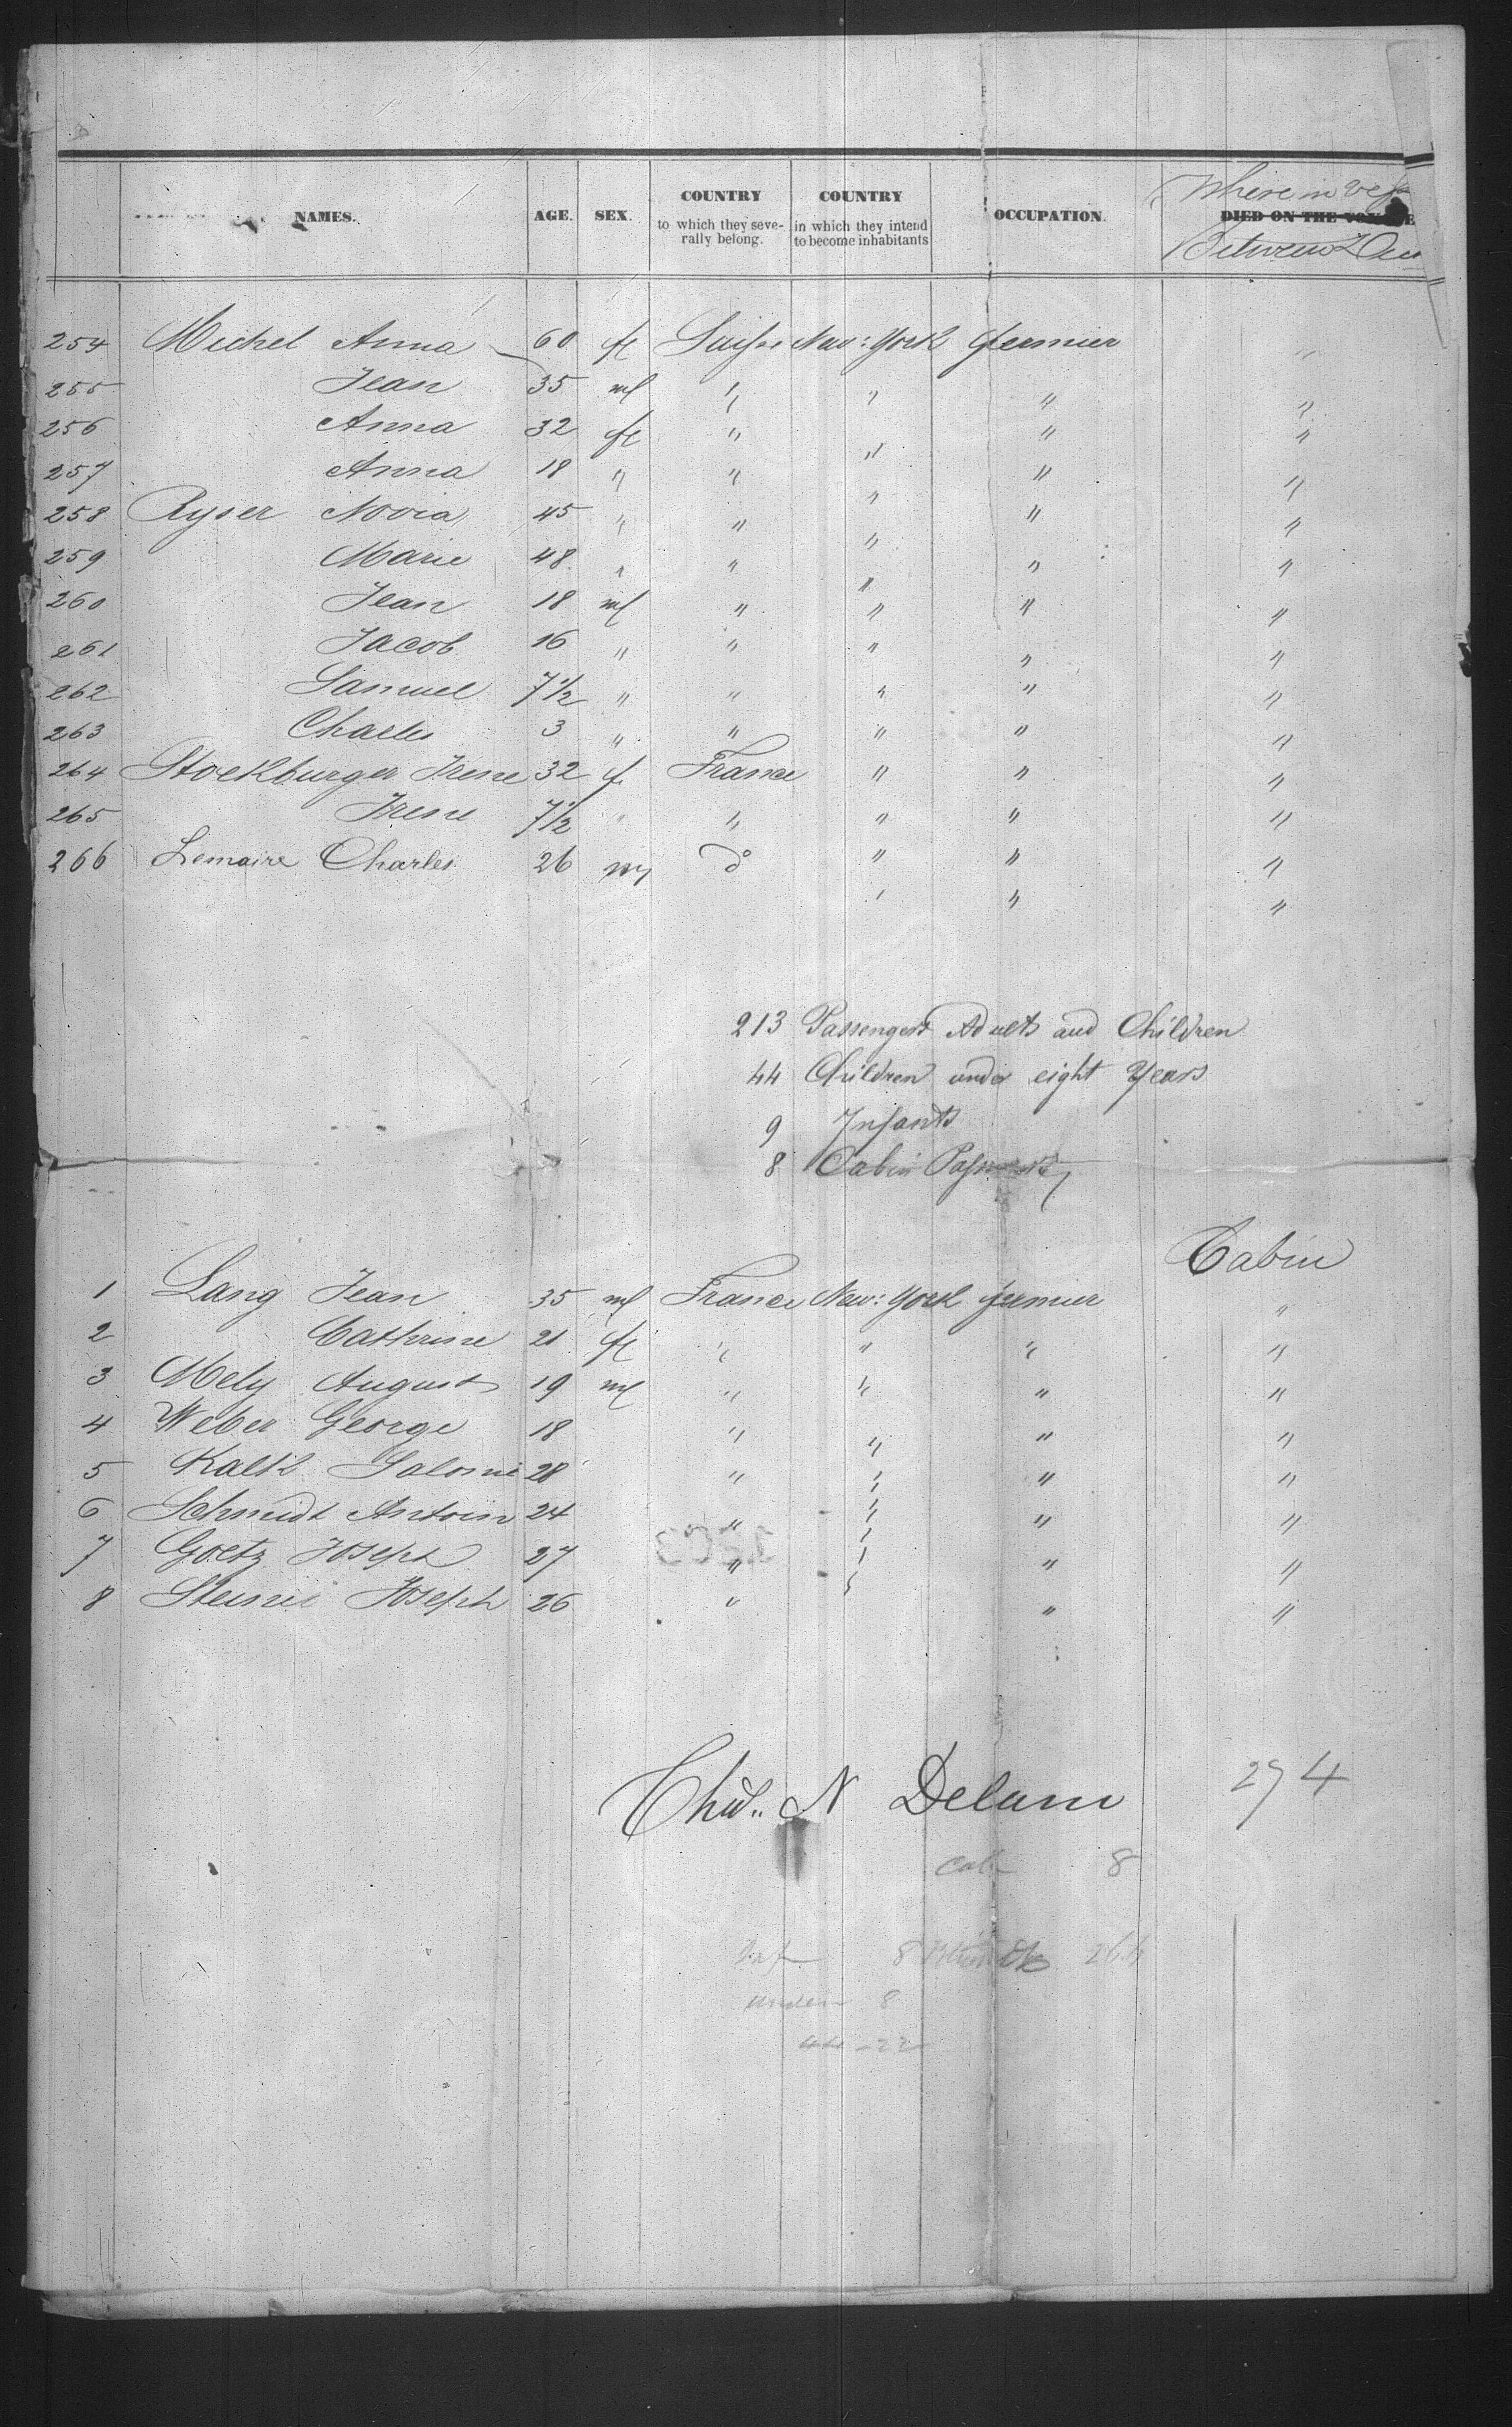 NAMES. AGE. SEX. COUNTRY to which they seve- rally belong. COUNTRY in which they intend to become inhabitants OCCUPATION. Where in DIED ON THE Between
254 Michel Anna 60 fl Suisse New: York fermier "
255 Jean 35 ml " " " "
256 Anna 32 fl " " " "
257 Anna 18 " " " " "
258 Ryser 45 " " " " "
259 Marie 48 " " " " "
260 Jean 18 ml " " " "
261 Jacob 16 " " " " "
262 Samuel 7 1/2 " " " " "
263 Charles 3 " " " " "
264 Stockburger Irene 32 f France " " "
265 Irene 7 1/2 " " " " "
266 Lemaire Charles 26 m do " " "
" " "
213 Passengers Adults and Children
44 Children under eight Years
9 Infants
8 Cabin
Cabin
1 Lang Jean 35 ml France New: York fermier "
2 Cathrine 21 fl " " " "
3 Mely August 19 ml " " " "
4 Weber George 18 " " " "
5 Kalk Salomé 28 " " " "
6 Schmidt Antoin 24 " " " "
7 Goetz Joseph 27 " " " "
8 Joseph 26 " " " "
N Delano 274
Cab 8
Inf 8
under 8